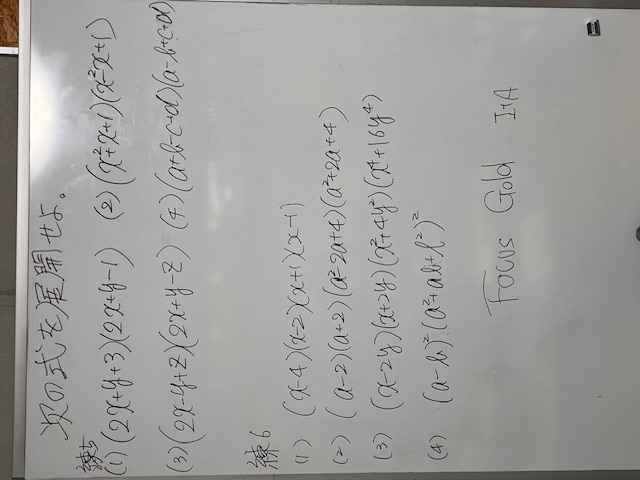 次の式を展開せよ。
練5
(1) (2x+y+3)(2x+y-1) (2) (x²+x+1)(x²-x+1)
(3) (2x-y+z)(2x+y-z) (4) (a+b-c+d)(a-b+c+d)
練6
(1) (x-4)(x-2)(x+1)(x-1)
(2) (a-2)(a+2)(a²-2a+4)(a²+2a+4)
(3) (x-2y)(x+2y)(x²+4y²)(x⁴+16y⁴)
(4) (a-b)²(a²+ab+b²)²
Focus Gold I+A